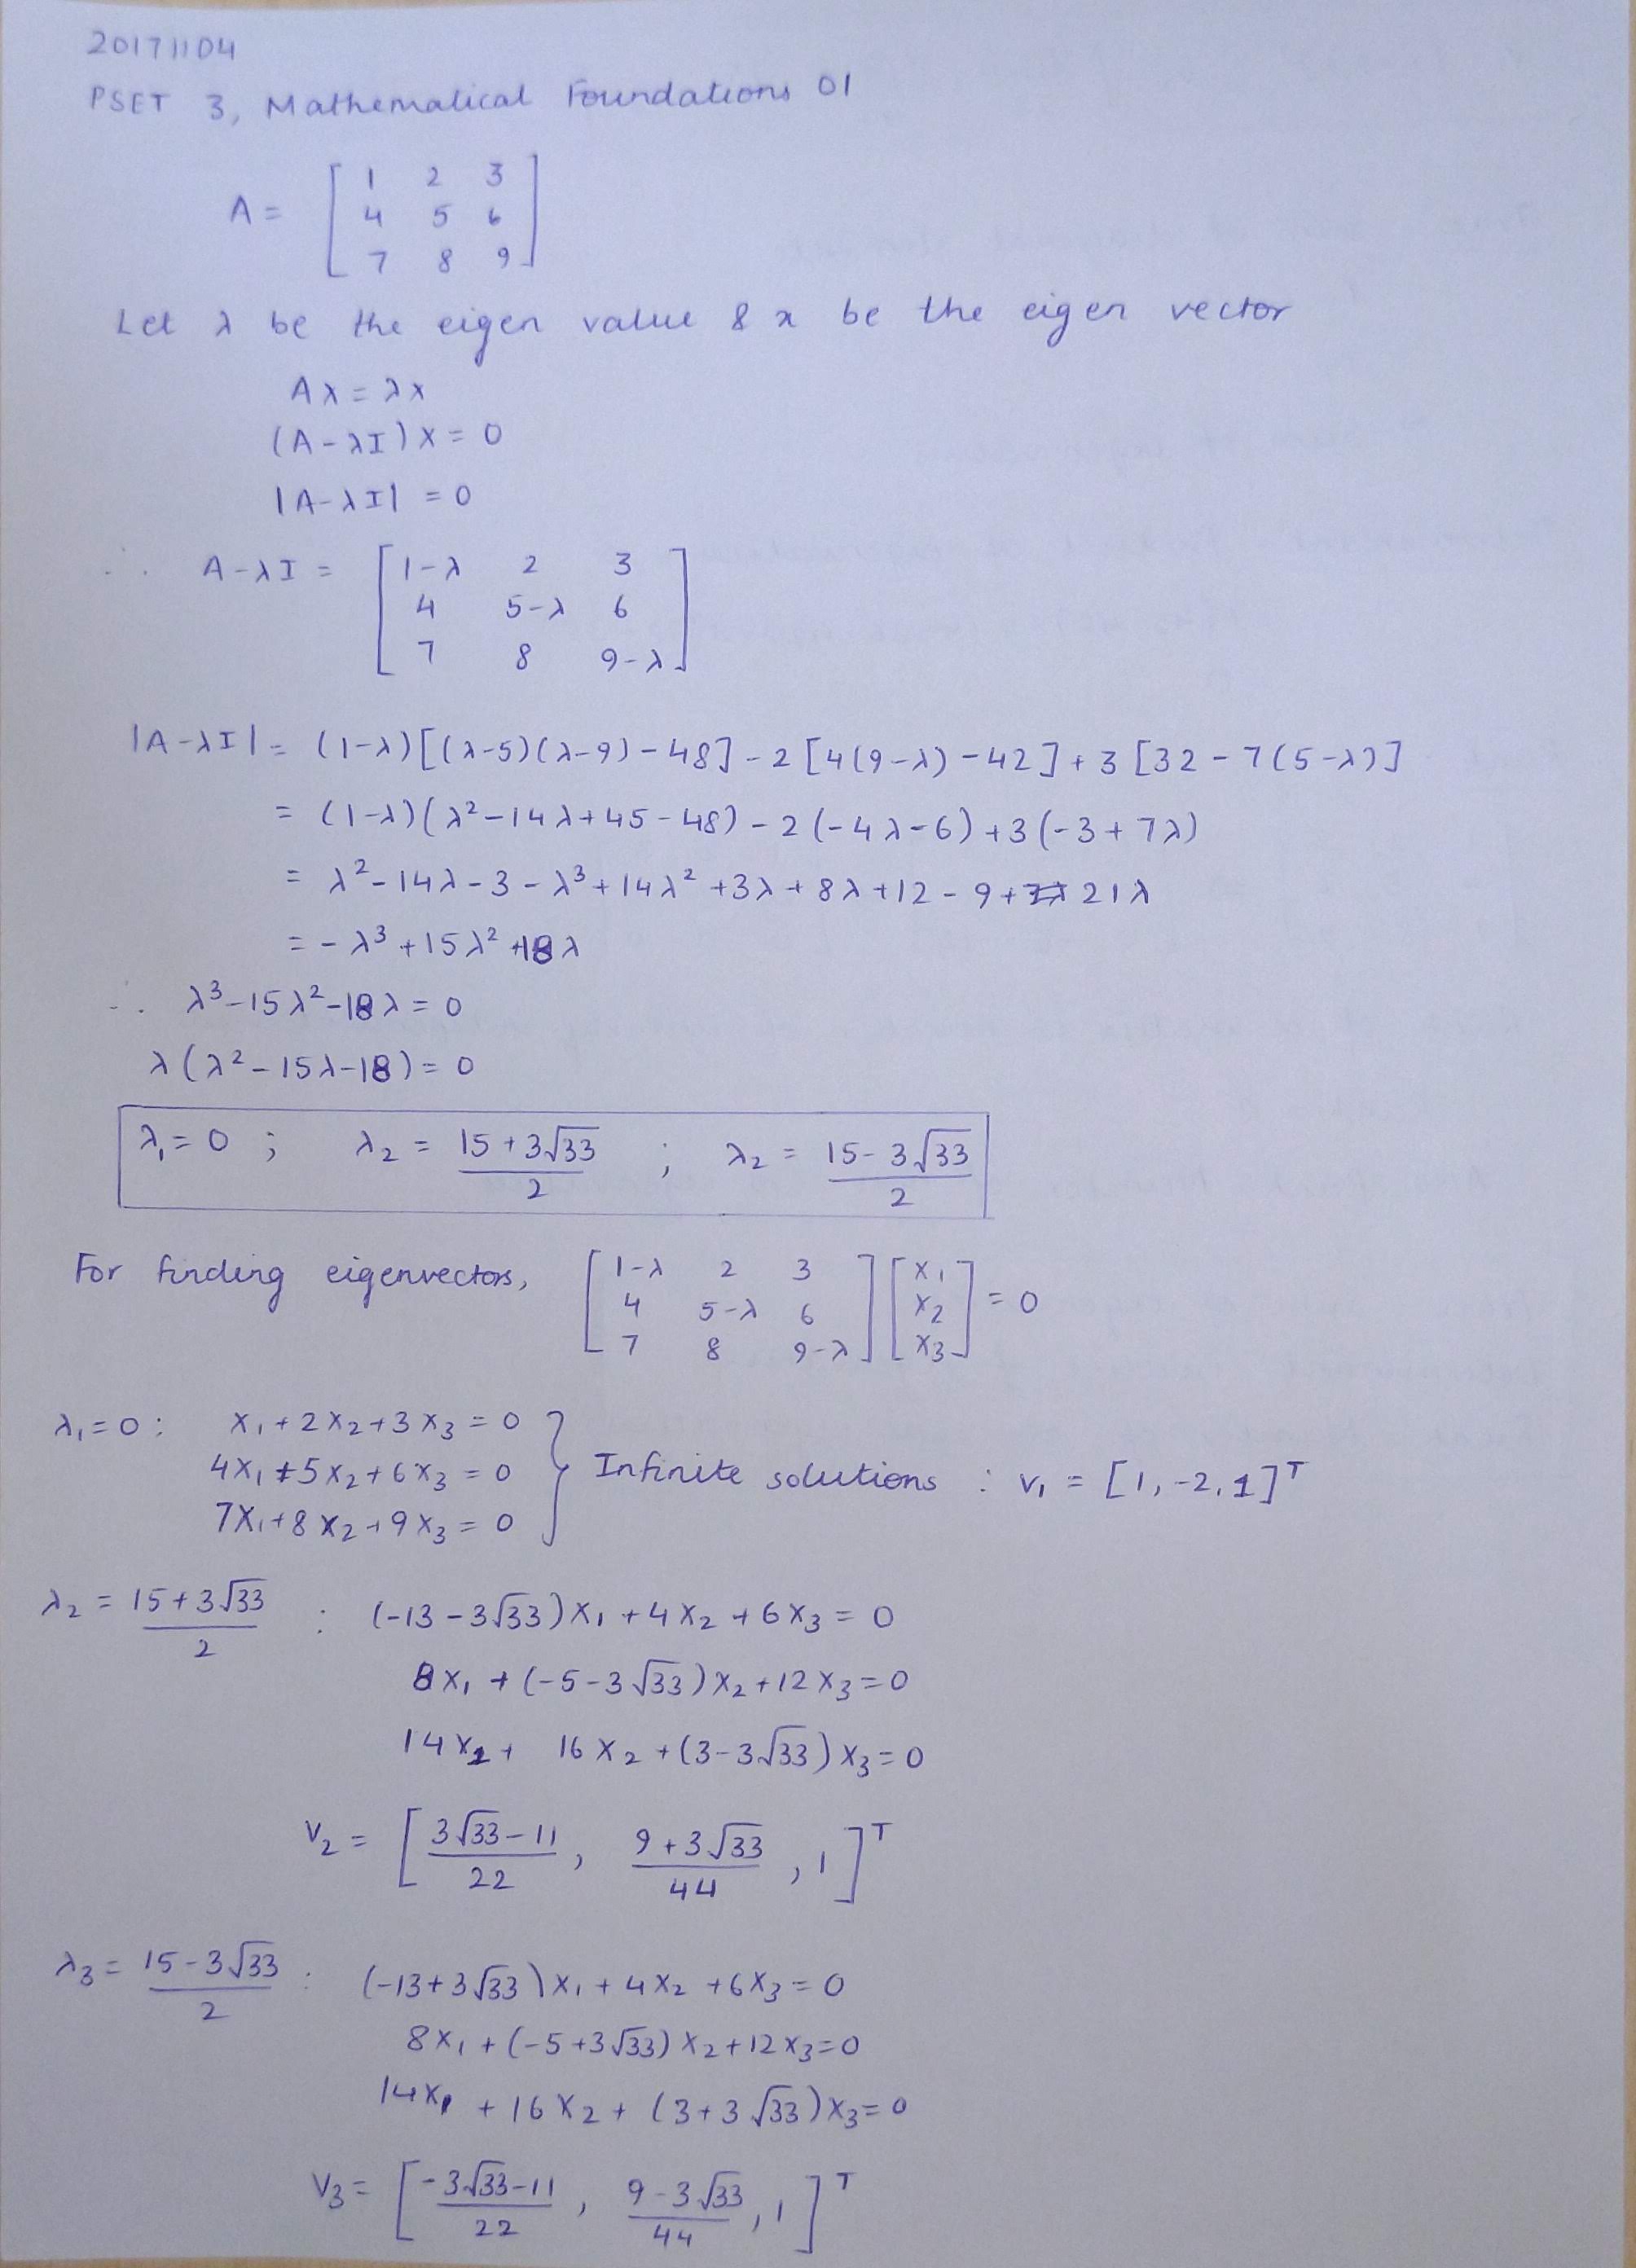 20171104
PSET 3, Mathematical Foundations 01
A = [ 1 2 3
4 5 6
7 8 9 ]
Let λ be the eigen value & x be the eigen vector
Ax = λx
(A-λI)x = 0
|A-λI| = 0
∴ A-λI = [ 1-λ 2 3
4 5-λ 6
7 8 9-λ ]
|A-λI| = (1-λ)[(λ-5)(λ-9)-48] - 2[4(9-λ)-42] + 3[32-7(5-λ)]
= (1-λ)(λ²-14λ+45-48) - 2(-4λ-6) + 3(-3+7λ)
= λ²-14λ-3-λ³+14λ²+3λ+8λ+12-9+21λ
= -λ³+15λ²+18λ
∴ λ³-15λ²-18λ = 0
λ(λ²-15λ-18) = 0
λ₁ = 0 ; λ₂ = (15+3√33)/2 ; λ₂ = (15-3√33)/2
For finding eigenvectors, [ 1-λ 2 3 ] [ x₁ ] = 0
4 5-λ 6 x₂
7 8 9-λ x₃
λ₁=0: x₁+2x₂+3x₃ = 0
4x₁+5x₂+6x₃ = 0 } Infinite solutions : v₁ = [1,-2,1]ᵀ
7x₁+8x₂+9x₃ = 0
λ₂ = (15+3√33)/2 : (-13-3√33)x₁+4x₂+6x₃ = 0
8x₁+(-5-3√33)x₂+12x₃=0
14x₁+ 16x₂+(3-3√33)x₃=0
v₂ = [ (3√33-11)/22 , (9+3√33)/44 , 1 ]ᵀ
λ₃ = (15-3√33)/2 : (-13+3√33)x₁+4x₂+6x₃=0
8x₁+(-5+3√33)x₂+12x₃=0
14x₁+16x₂+(3+3√33)x₃=0
v₃ = [ (-3√33-11)/22 , (9-3√33)/44 , 1 ]ᵀ